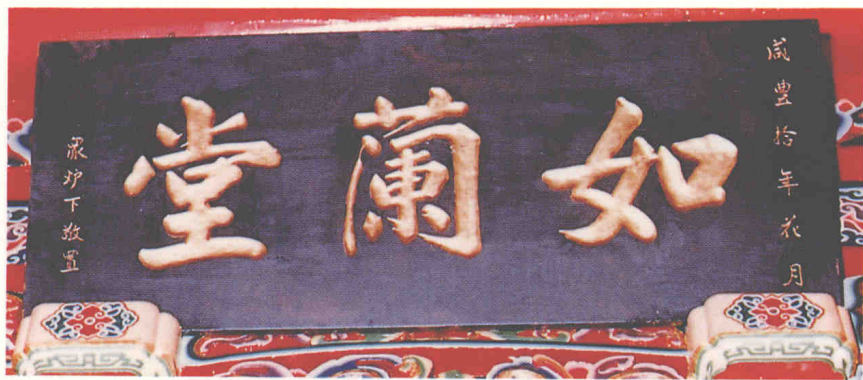 咸豐拾年花月
如蘭堂
眾炉下敬置